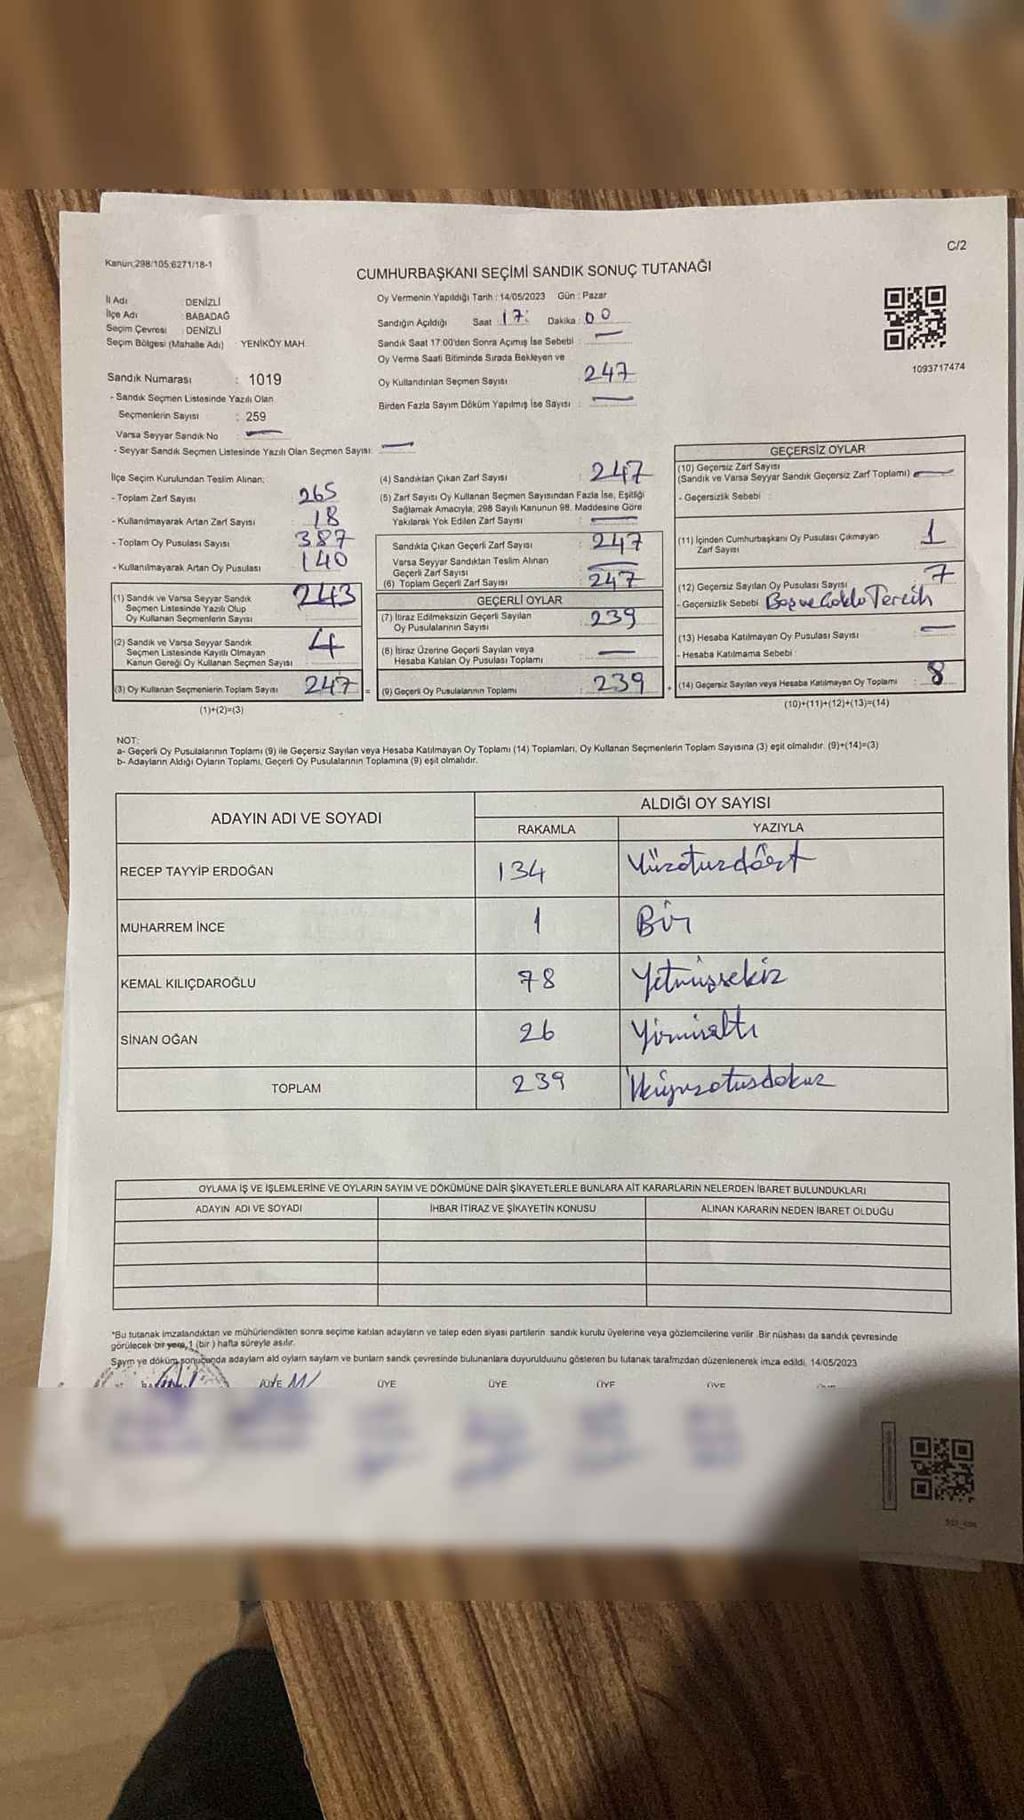 C/2
Kanun:298/105:6271/18-1
CUMHURBAŞKANI SEÇİMİ SANDIK SONUÇ TUTANAĞI
İl Adı : DENİZLİ
İlçe Adı : BABADAĞ
Seçim Çevresi : DENİZLİ
Seçim Bölgesi (Mahalle Adı) YENİKÖY MAH.
Sandık Numarası : 1019
- Sandık Seçmen Listesinde Yazılı Olan
Seçmenlerin Sayısı : 259
Varsa Seyyar Sandık No
- Seyyar Sandık Seçmen Listesinde Yazılı Olan Seçmen Sayısı:
Oy Vermenin Yapıldığı Tarih : 14/05/2023 Gün : Pazar
Sandığın Açıldığı Saat 17: Dakika : 00
Sandık Saat 17:00'den Sonra Açımış İse Sebebi :
Oy Verme Saati Bitiminde Sırada Bekleyen ve
Oy Kullandırılan Seçmen Sayısı 247
Birden Fazla Sayım Döküm Yapılmış İse Sayısı :
1093717474
İlçe Seçim Kurulundan Teslim Alınan;
- Toplam Zarf Sayısı 265
- Kullanılmayarak Artan Zarf Sayısı : 18
- Toplam Oy Pusulası Sayısı 387
- Kullanılmayarak Artan Oy Pusulası 140
(1) Sandık ve Varsa Seyyar Sandık 243
Seçmen Listesinde Yazılı Olup
Oy Kullanan Seçmenlerin Sayısı
(2) Sandık ve Varsa Seyyar Sandık 4
Seçmen Listesinde Kayıtlı Olmayan
Kanun Gereği Oy Kullanan Seçmen Sayısı
(3) Oy Kullanan Seçmenlerin Toplam Sayısı 247 =
(1)+(2)=(3)
(4) Sandıktan Çıkan Zarf Sayısı : 247
(5) Zarf Sayısı Oy Kullanan Seçmen Sayısından Fazla İse, Eşitliği
Sağlamak Amacıyla, 298 Sayılı Kanunun 98. Maddesine Göre
Yakılarak Yok Edilen Zarf Sayısı :
Sandıkta Çıkan Geçerli Zarf Sayısı : 247
Varsa Seyyar Sandıktan Teslim Alınan
Geçerli Zarf Sayısı
(6) Toplam Geçerli Zarf Sayısı : 247
GEÇERLİ OYLAR
(7) İtiraz Edilmeksizin Geçerli Sayılan : 239
Oy Pusulalarının Sayısı
(8) İtiraz Üzerine Geçerli Sayılan veya
Hesaba Katılan Oy Pusulası Toplamı :
(9) Geçerli Oy Pusulalarının Toplamı : 239 +
GEÇERSİZ OYLAR
(10) Geçersiz Zarf Sayısı
(Sandık ve Varsa Seyyar Sandık Geçersiz Zarf Toplamı) :
- Geçersizlik Sebebi :
(11) İçinden Cumhurbaşkanı Oy Pusulası Çıkmayan 1
Zarf Sayısı
(12) Geçersiz Sayılan Oy Pusulası Sayısı 7
- Geçersizlik Sebebi Boş ve Çoklu Tercih
(13) Hesaba Katılmayan Oy Pusulası Sayısı :
- Hesaba Katılmama Sebebi :
(14) Geçersiz Sayılan veya Hesaba Katılmayan Oy Toplamı : 8
(10)+(11)+(12)+(13)=(14)
NOT:
a- Geçerli Oy Pusulalarının Toplamı (9) ile Geçersiz Sayılan veya Hesaba Katılmayan Oy Toplamı (14) Toplamları, Oy Kullanan Seçmenlerin Toplam Sayısına (3) eşit olmalıdır. (9)+(14)=(3)
b- Adayların Aldığı Oyların Toplamı, Geçerli Oy Pusulalarının Toplamına (9) eşit olmalıdır.
ADAYIN ADI VE SOYADI ALDIĞI OY SAYISI
RAKAMLA YAZIYLA
RECEP TAYYİP ERDOĞAN 134 Yüzotuzdört
MUHARREM İNCE 1 Bir
KEMAL KILIÇDAROĞLU 78 Yetmişsekiz
SİNAN OĞAN 26 Yirmialtı
TOPLAM 239 İkiyüzotuzdokuz
OYLAMA İŞ VE İŞLEMLERİNE VE OYLARIN SAYIM VE DÖKÜMÜNE DAİR ŞİKAYETLERLE BUNLARA AİT KARARLARIN NELERDEN İBARET BULUNDUKLARI
ADAYIN ADI VE SOYADI İHBAR İTİRAZ VE ŞİKAYETİN KONUSU ALINAN KARARIN NEDEN İBARET OLDUĞU
*Bu tutanak imzalandıktan ve mühürlendikten sonra seçime katılan adayların ve talep eden siyasi partilerin sandık kurulu üyelerine veya gözlemcilerine verilir. Bir nüshası da sandık çevresinde
görülecek bir yere, 1 (bir ) hafta süreyle asılır.
Sayım ve döküm sonucunda adayların ald oyların sayların ve bunların sandk çevresinde bulunanlara duyurulduunu gösteren bu tutanak tarafmzdan düzenlenerek imza edildi. 14/05/2023
ÜYE ÜYE ÜYE ÜYE ÜYE